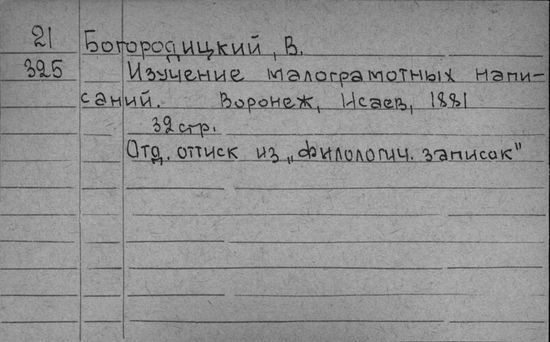 21 Богородицкий, В.
325 Изучение малограмотных напи-
саний. Воронеж, Исаев, 1881
32 стр.
Отд. оттиск из „Филологич. записок"